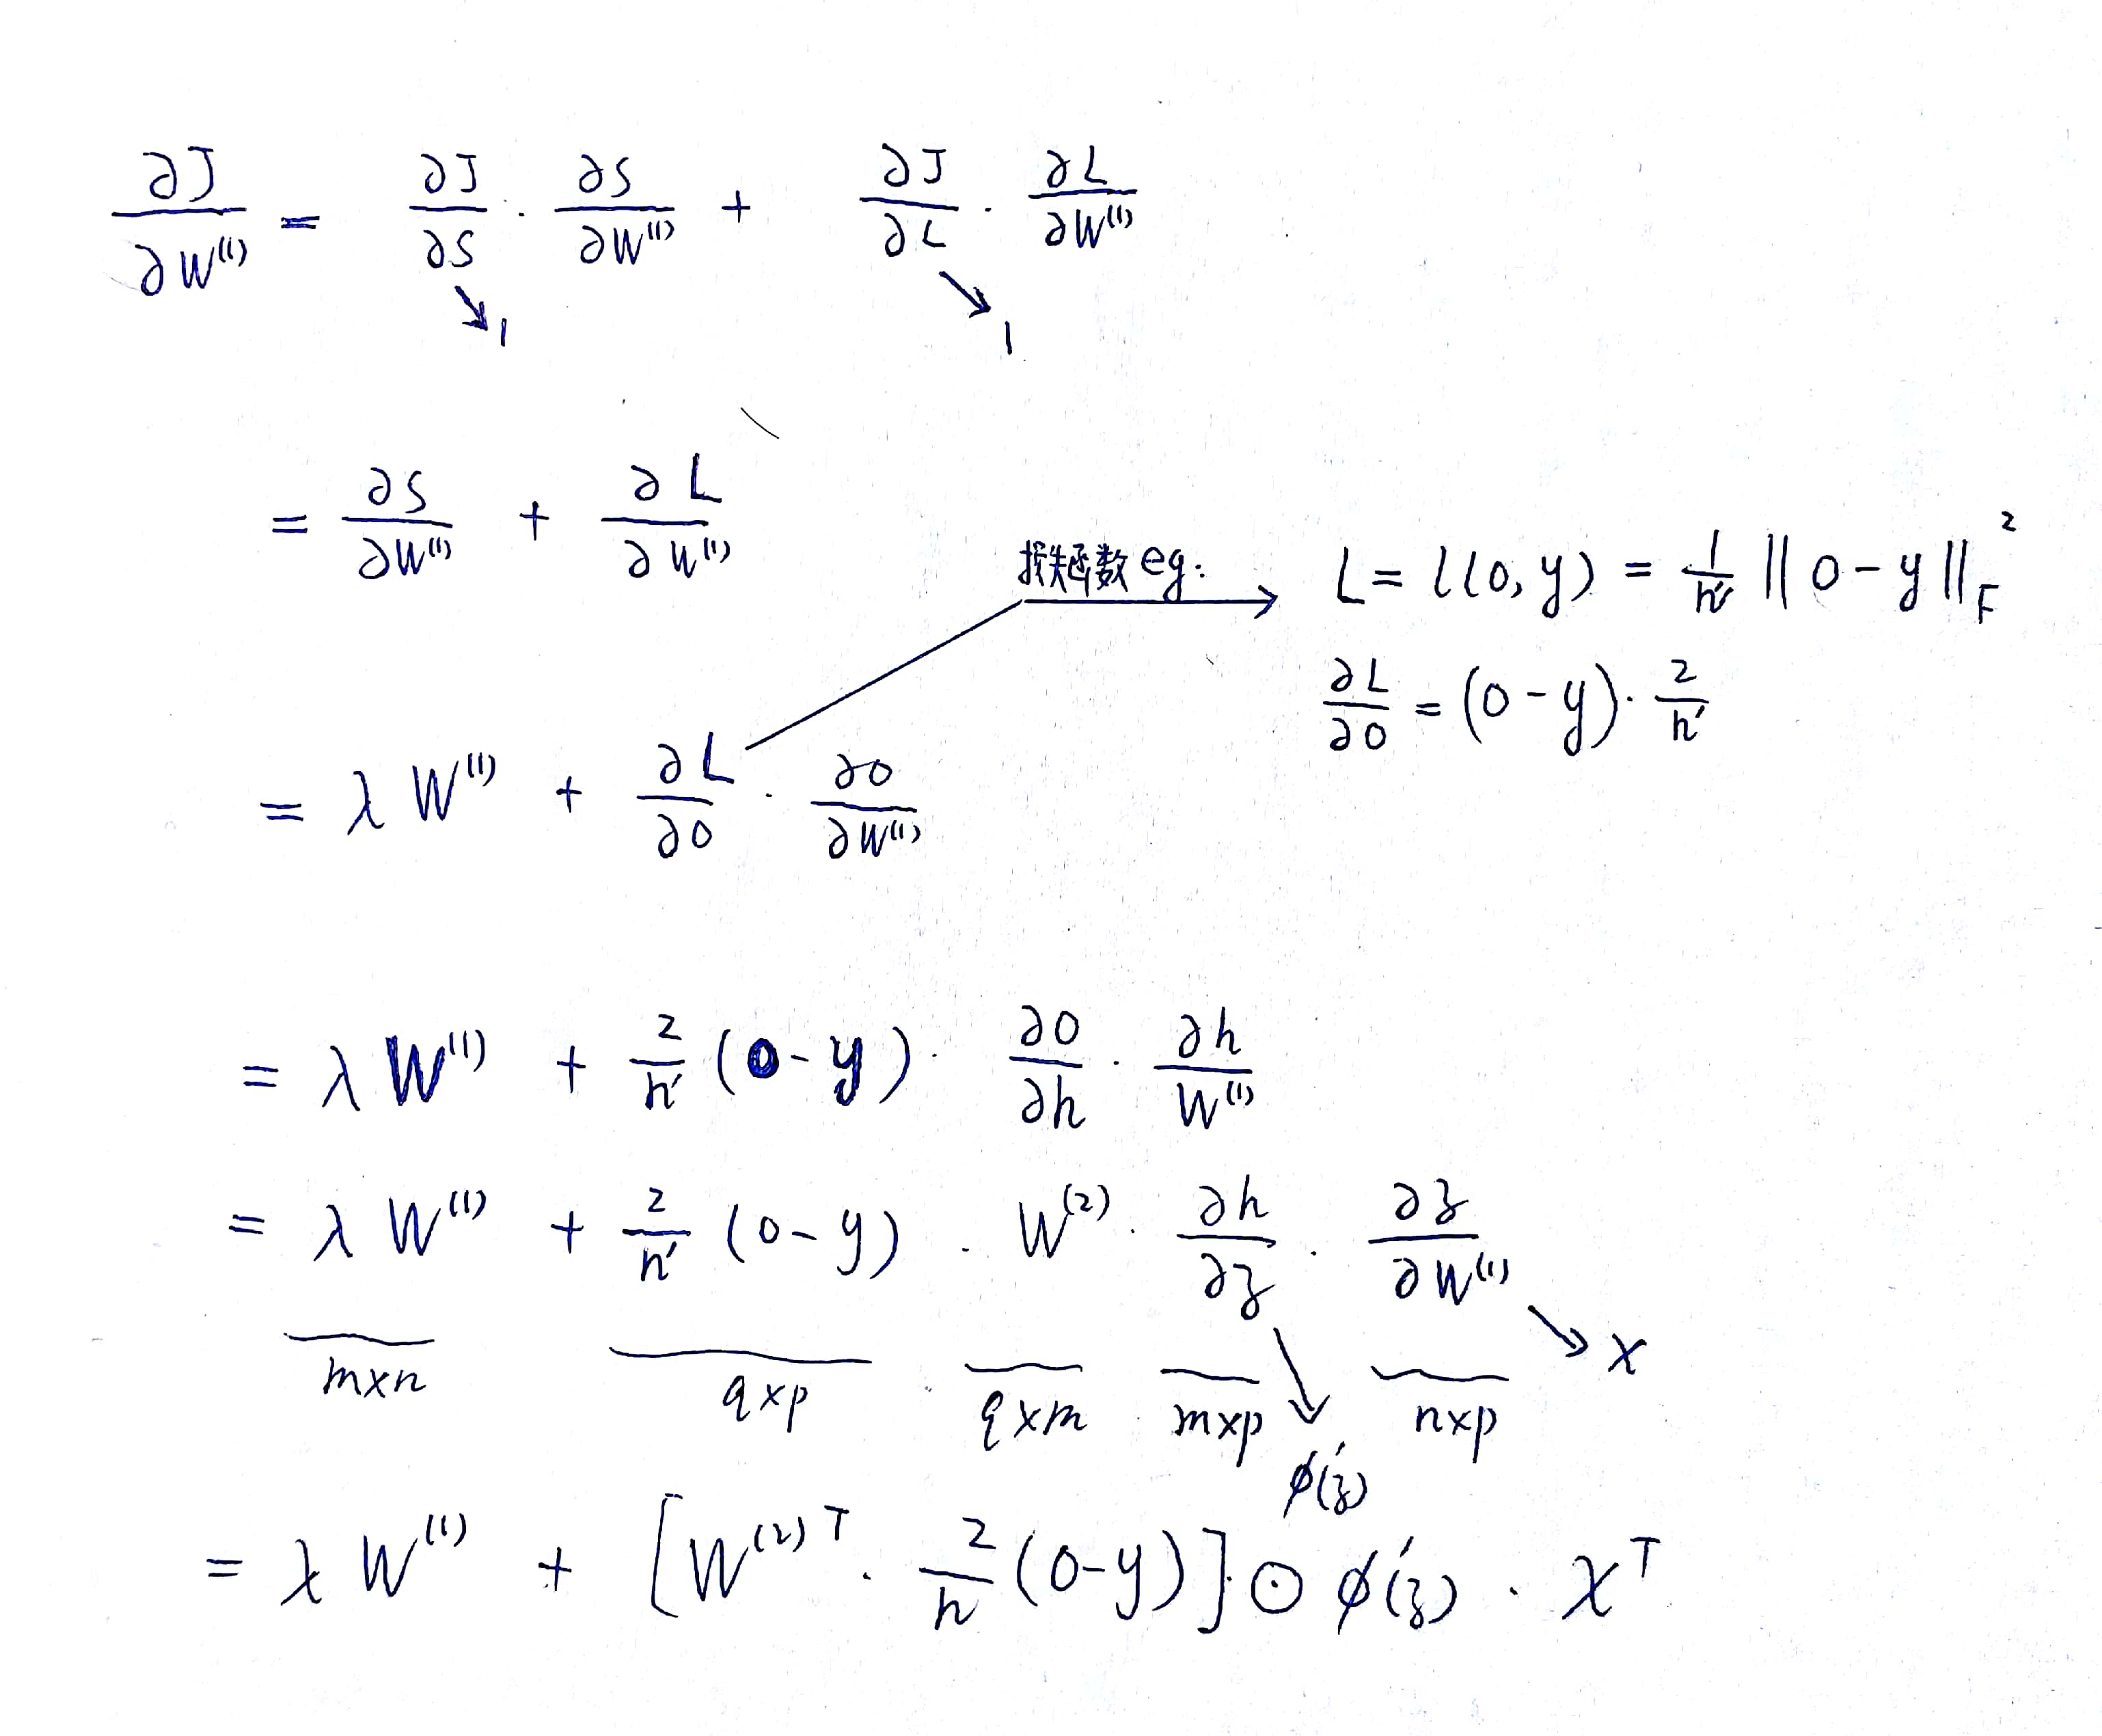 ∂J/∂W⁽¹⁾ = ∂J/∂S · ∂S/∂W⁽¹⁾ + ∂J/∂L · ∂L/∂W⁽¹⁾
↘1 ↘1
= ∂S/∂W⁽¹⁾ + ∂L/∂W⁽¹⁾
损失函数 eg: → L = l(o, y) = 1/n' ||o - y||_F²
∂L/∂o = (o - y) · 2/n'
= λ W⁽¹⁾ + ∂L/∂o · ∂o/∂W⁽¹⁾
= λ W⁽¹⁾ + 2/n' (o - y) · ∂o/∂h · ∂h/W⁽¹⁾
= λ W⁽¹⁾ + 2/n' (o - y) · W⁽²⁾ · ∂h/∂z · ∂z/∂W⁽¹⁾
↘ x
m×n q×p q×m m×p n×p
↘ ϕ'(z)
= λ W⁽¹⁾ + [W⁽²⁾ᵀ · 2/n (o - y)] ⊙ ϕ'(z) · xᵀ